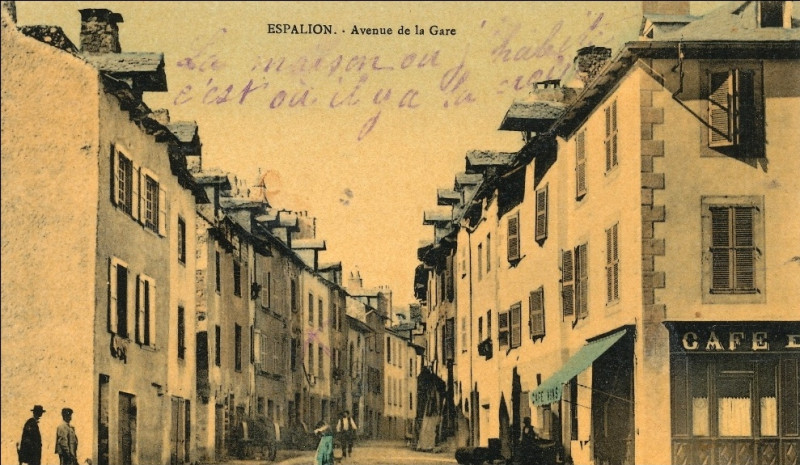 ESPALION. - Avenue de la Gare
La maison où j'habite
c'est où il y a la
CAFÉ VINS
CAFE D